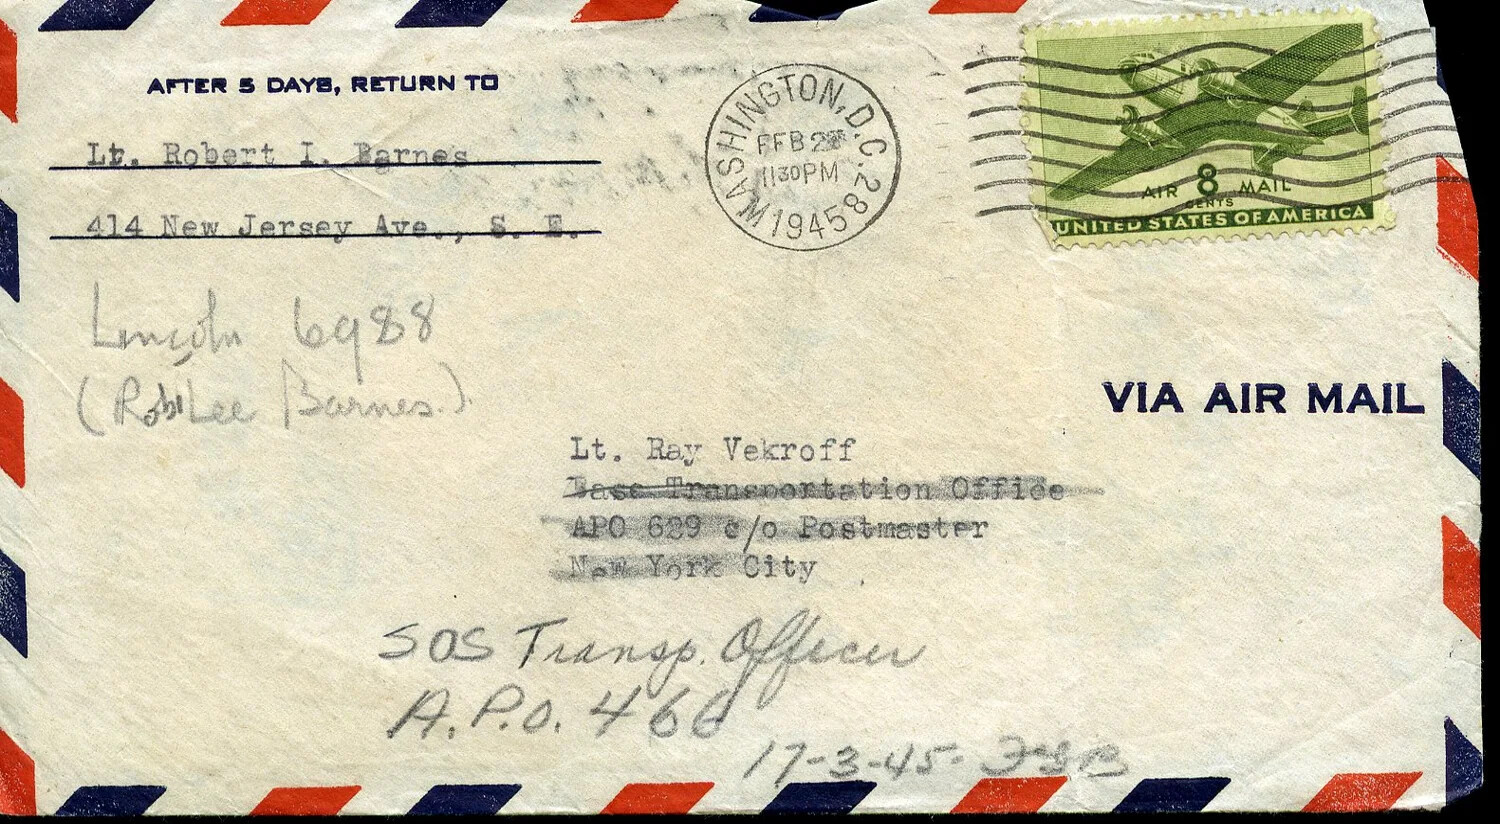 AFTER 5 DAYS, RETURN TO
Lt. Robert I. Barnes
414 New Jersey Ave., S. E.
Lincoln 6988
(Robt Lee Barnes.)
WASHINGTON, D.C. 28
FEB 2
1130 PM
1945
AIR 8 MAIL
CENTS
UNITED STATES OF AMERICA
VIA AIR MAIL
Lt. Ray Vekroff
Base Transportation Office
APO 629 c/o Postmaster
New York City
SOS Transp. Officer
A.P.O. 466
17-3-45-